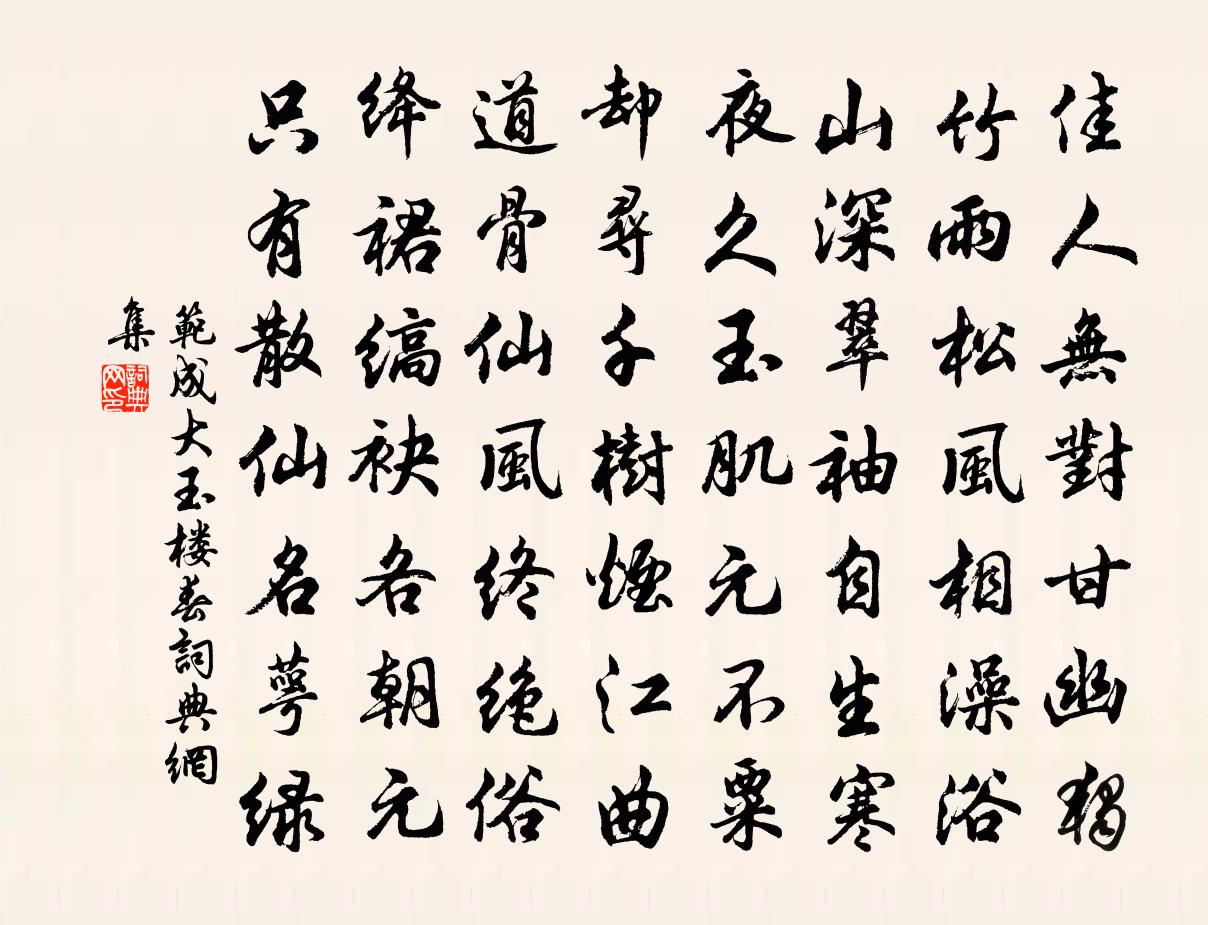 佳人無對甘幽獨
竹雨松風相澡浴
山深翠袖自生寒
夜久玉肌元不粟
却尋千樹煙江曲
道骨仙風终绝俗
绛裙縞袂各朝元
只有散仙名萼绿
範成大玉楼春詞典網
集
詞典网印